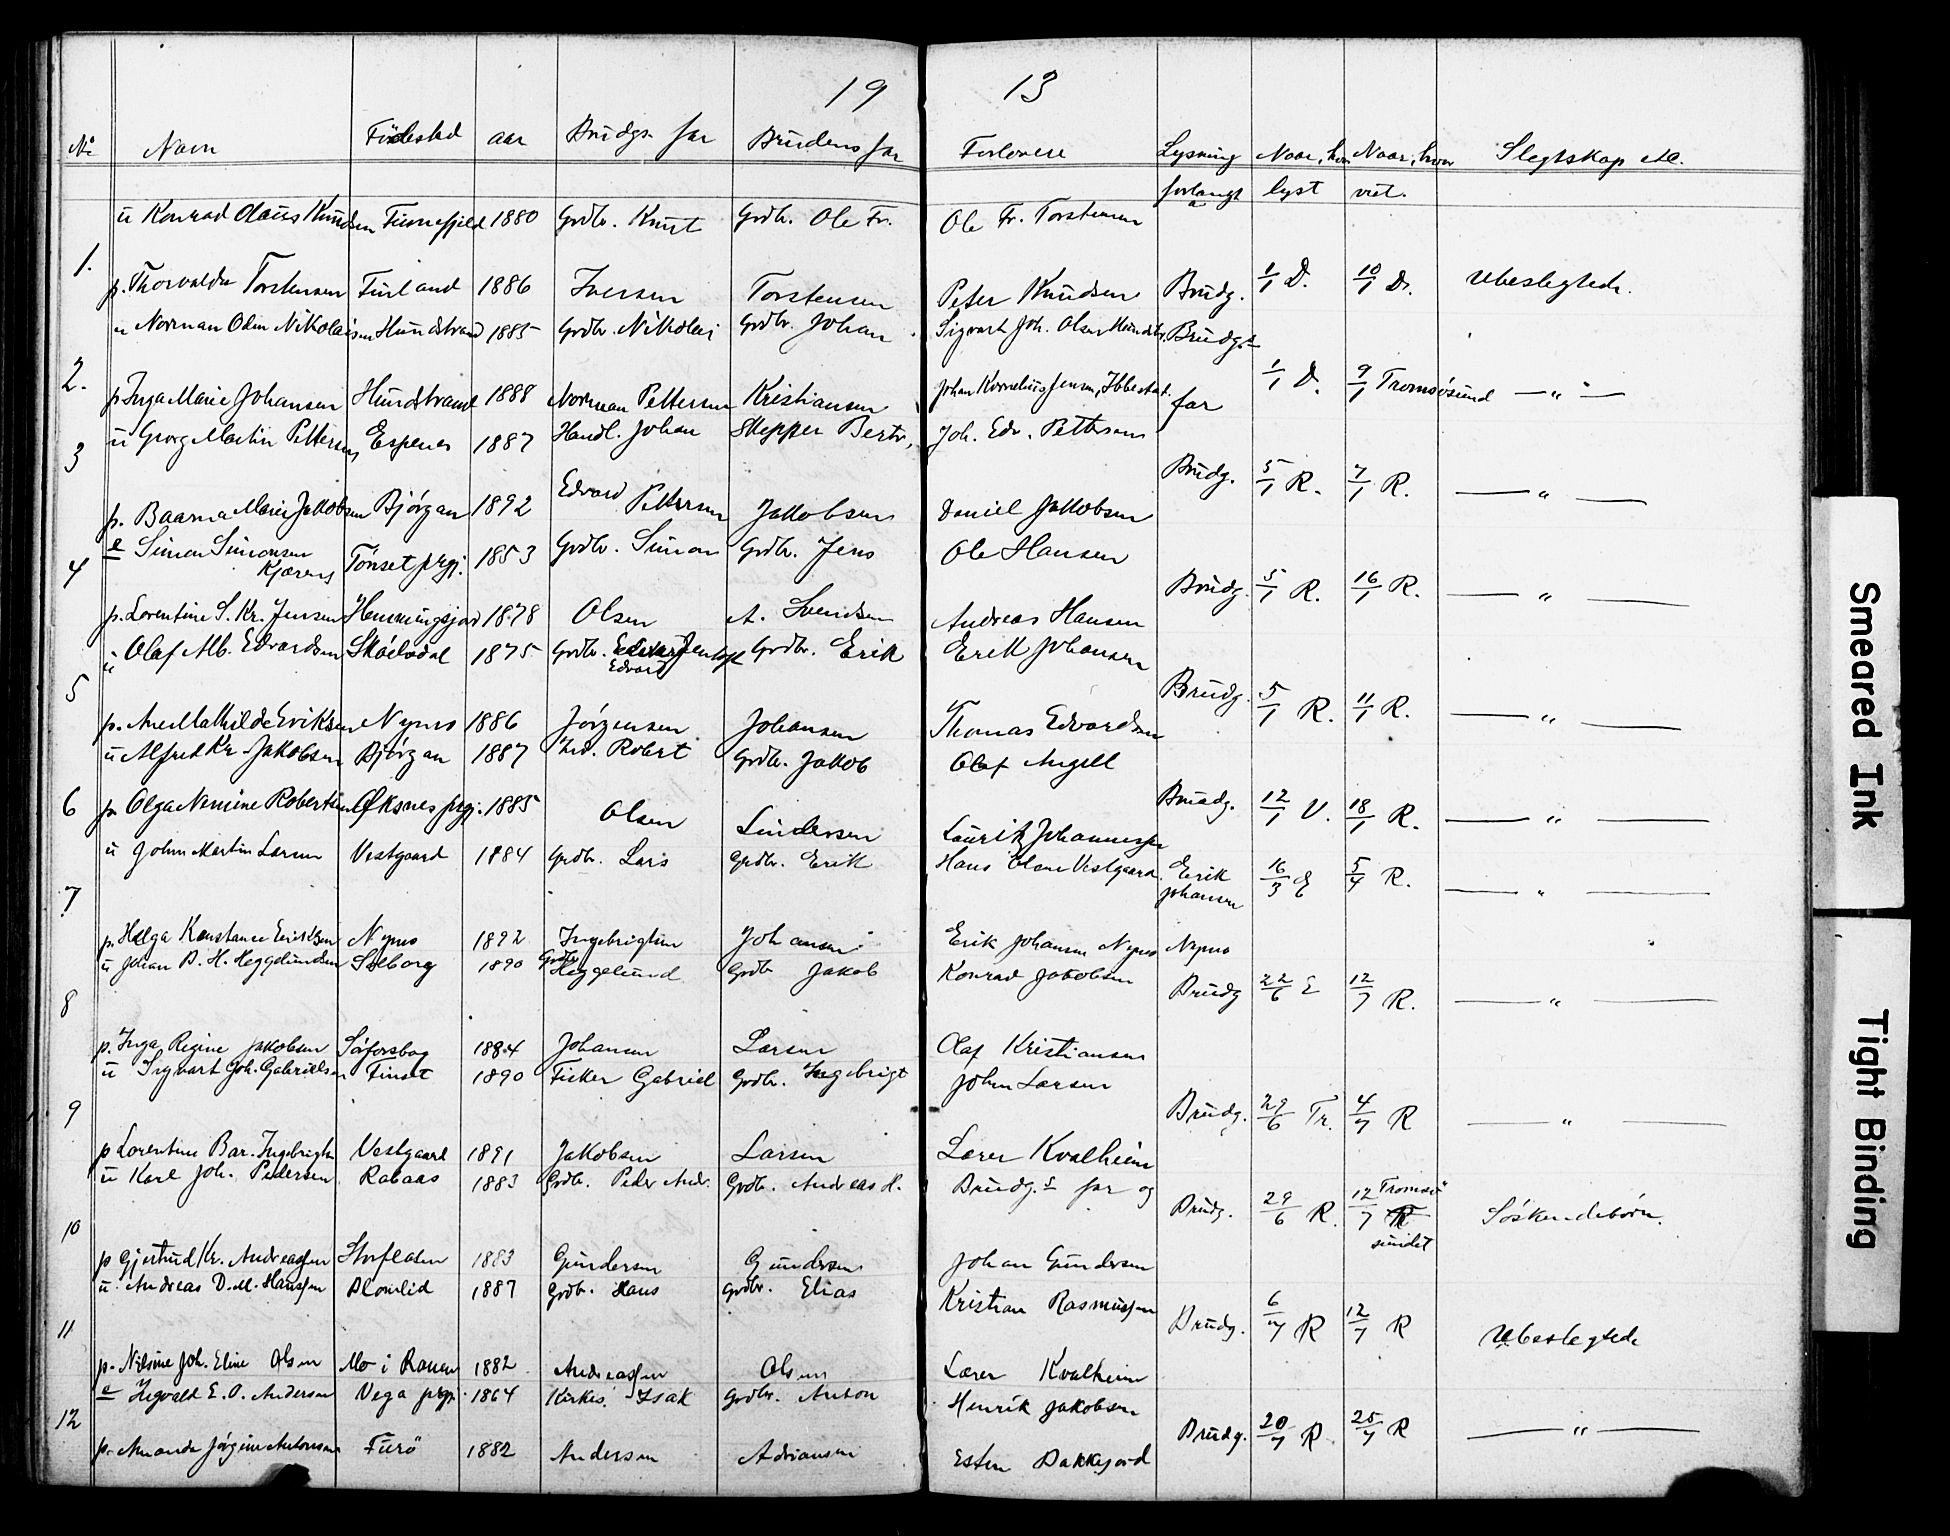 19 13
No Navn Födested aar Brudgs far Brudens far Forlovere Lysning forlangt a Naar, hvor lyst Naar, hvor viet. Slegtskap etc.
u Konrad Olaus Knudsen Finnefjeld 1880 Grdbr. Knut Grdbr. Ole Fr. Ole Fr. Torstensen
1. Brudg. 1/1 D. 10/1 D. Ubeslegtede.
p. Thorvalda Torstensen Finland 1886 Iversen Torstensen Peter Knudsen
u Norman Odin Nikolaisen Hundstrand 1885 Grdbr. Nikolai Grdbr. Johan Sigvart Joh. Olsen Brudgs
2. far 1/1 D. 9/1 Tromsösund — " —
p Inga Marie Johansen Hundstrand 1888 Norman Pettersen Kristiansen Johan Kornelius Jensen, Ibbestad.
u Georg Martin Pettersen Espenes 1887 Handl. Johan Skepper Bertr. Joh. Edv. Pettersen
3 Brudg. 5/1 R. 7/1 R. — " —
p. Baarna Marie Jakobsen Björgan 1892 Edvard Pettersen Jakobsen Daniel Jakobsen
e Simon Simonsen Kjæreng Tönset prgj. 1853 Grdbr. Simon Grdbr. Jens Ole Hansen
4 Brudg. 5/1 R. 16/1 R. — " —
p. Lorentine S. Kr. Jensen Hemmingsjord 1878 Olsen A. Svendsen Andreas Hansen
u Olaf Alb. Edvardsen Sköelvdal 1875 Grdbr. Edvard Jentoft Grdbr. Erik Erik Johansen
Edvard
5 Brudg. 5/1 R. 11/1 R. — " —
p. Ane Mathilde Eriksen Nymo 1886 Jörgensen Johansen Thomas Edvardsen
u Alfred Kr. Jakobsen Björgan 1887 Robert Grdbr. Jakob Olaf Angell
6 Brudg. 12/1 V. 18/1 R. — " —
p. Olga Nemine Robertine Öksnes prgj. 1885 Olsen Lindersen Laurik Johannessen
u John Martin Larsen Vestgaard 1884 Grdbr. Lars Grdbr. Erik Hans Olsen Vestgaard. Erik Johansen 16/3 E 5/4 R. — " —
7
p. Helga Konstanse Eriksen Nymo 1892 Ingebrigtsen Johansen Erik Johansen Nymo Nymo
u Johan B. H. Heggelundsen Solborg 1890 Grdbr. Heggelund Grdb Jakob Konrad Jakobsen
8 Brudg 22/6 E 12/7 R. — " —
p. Inga Regine Jakobsen Sörforsbog 1884 Johansen Larsen Olaf Kristiansen
u Sigvart Joh. Gabrielsen Finset 1890 Fisker Gabriel Grdbr. Ingebrigt John Larsen
9 Brudg. 29/6 Tr. 4/7 R — " —
p Lorentine Bar. Ingebrigtsen Vestgaard 1891 Jakobsen Larsen Lærer Kvalheim
u Karl Joh. Pedersen Rabaas 1883 Grdbr. Peder Andr. Grdbr. Andreas H. Brudg.s far og
10 Brudg. 29/6 R. 12/7 Tromsö R sundet Söskendebörn.
p Gjertrud Kr. Andreassen Storflesen 1883 Gundersen Gundersen Johan Gundersen
u Andreas D. M. Hanssen Blomlid 1887 Grdbr. Hans Grdbr. Elias Kristian Rasmussen
11 Brudg. 6/7 R 12/7 R Ubeslegtede
p. Nilsine Joh. Eline Olsen Mo i Ranen 1882 Andreassen Olsen Lærer Kvalheim
e Ingvald E. O. Andersen Vega prgj. 1864 Kirkes. Isak Grdbr. Anton Henrik Jakobsen
12 Brudg. 20/7 R 25/7 R — " —
p. Amanda Jörgine Antonsen Furö 1882 Andersen Adriansen Esten Bakkejord
Smeared Ink
Tight Binding